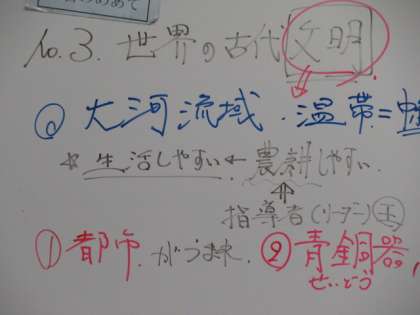 No.3. 世界の古代文明
◎ 大河流域・温帯=
☆ 生活しやすい ← 農耕しやすい.
⇑
指導者(リーダー) 王
① 都市 がうまれ. ② 青銅器,
せいどう